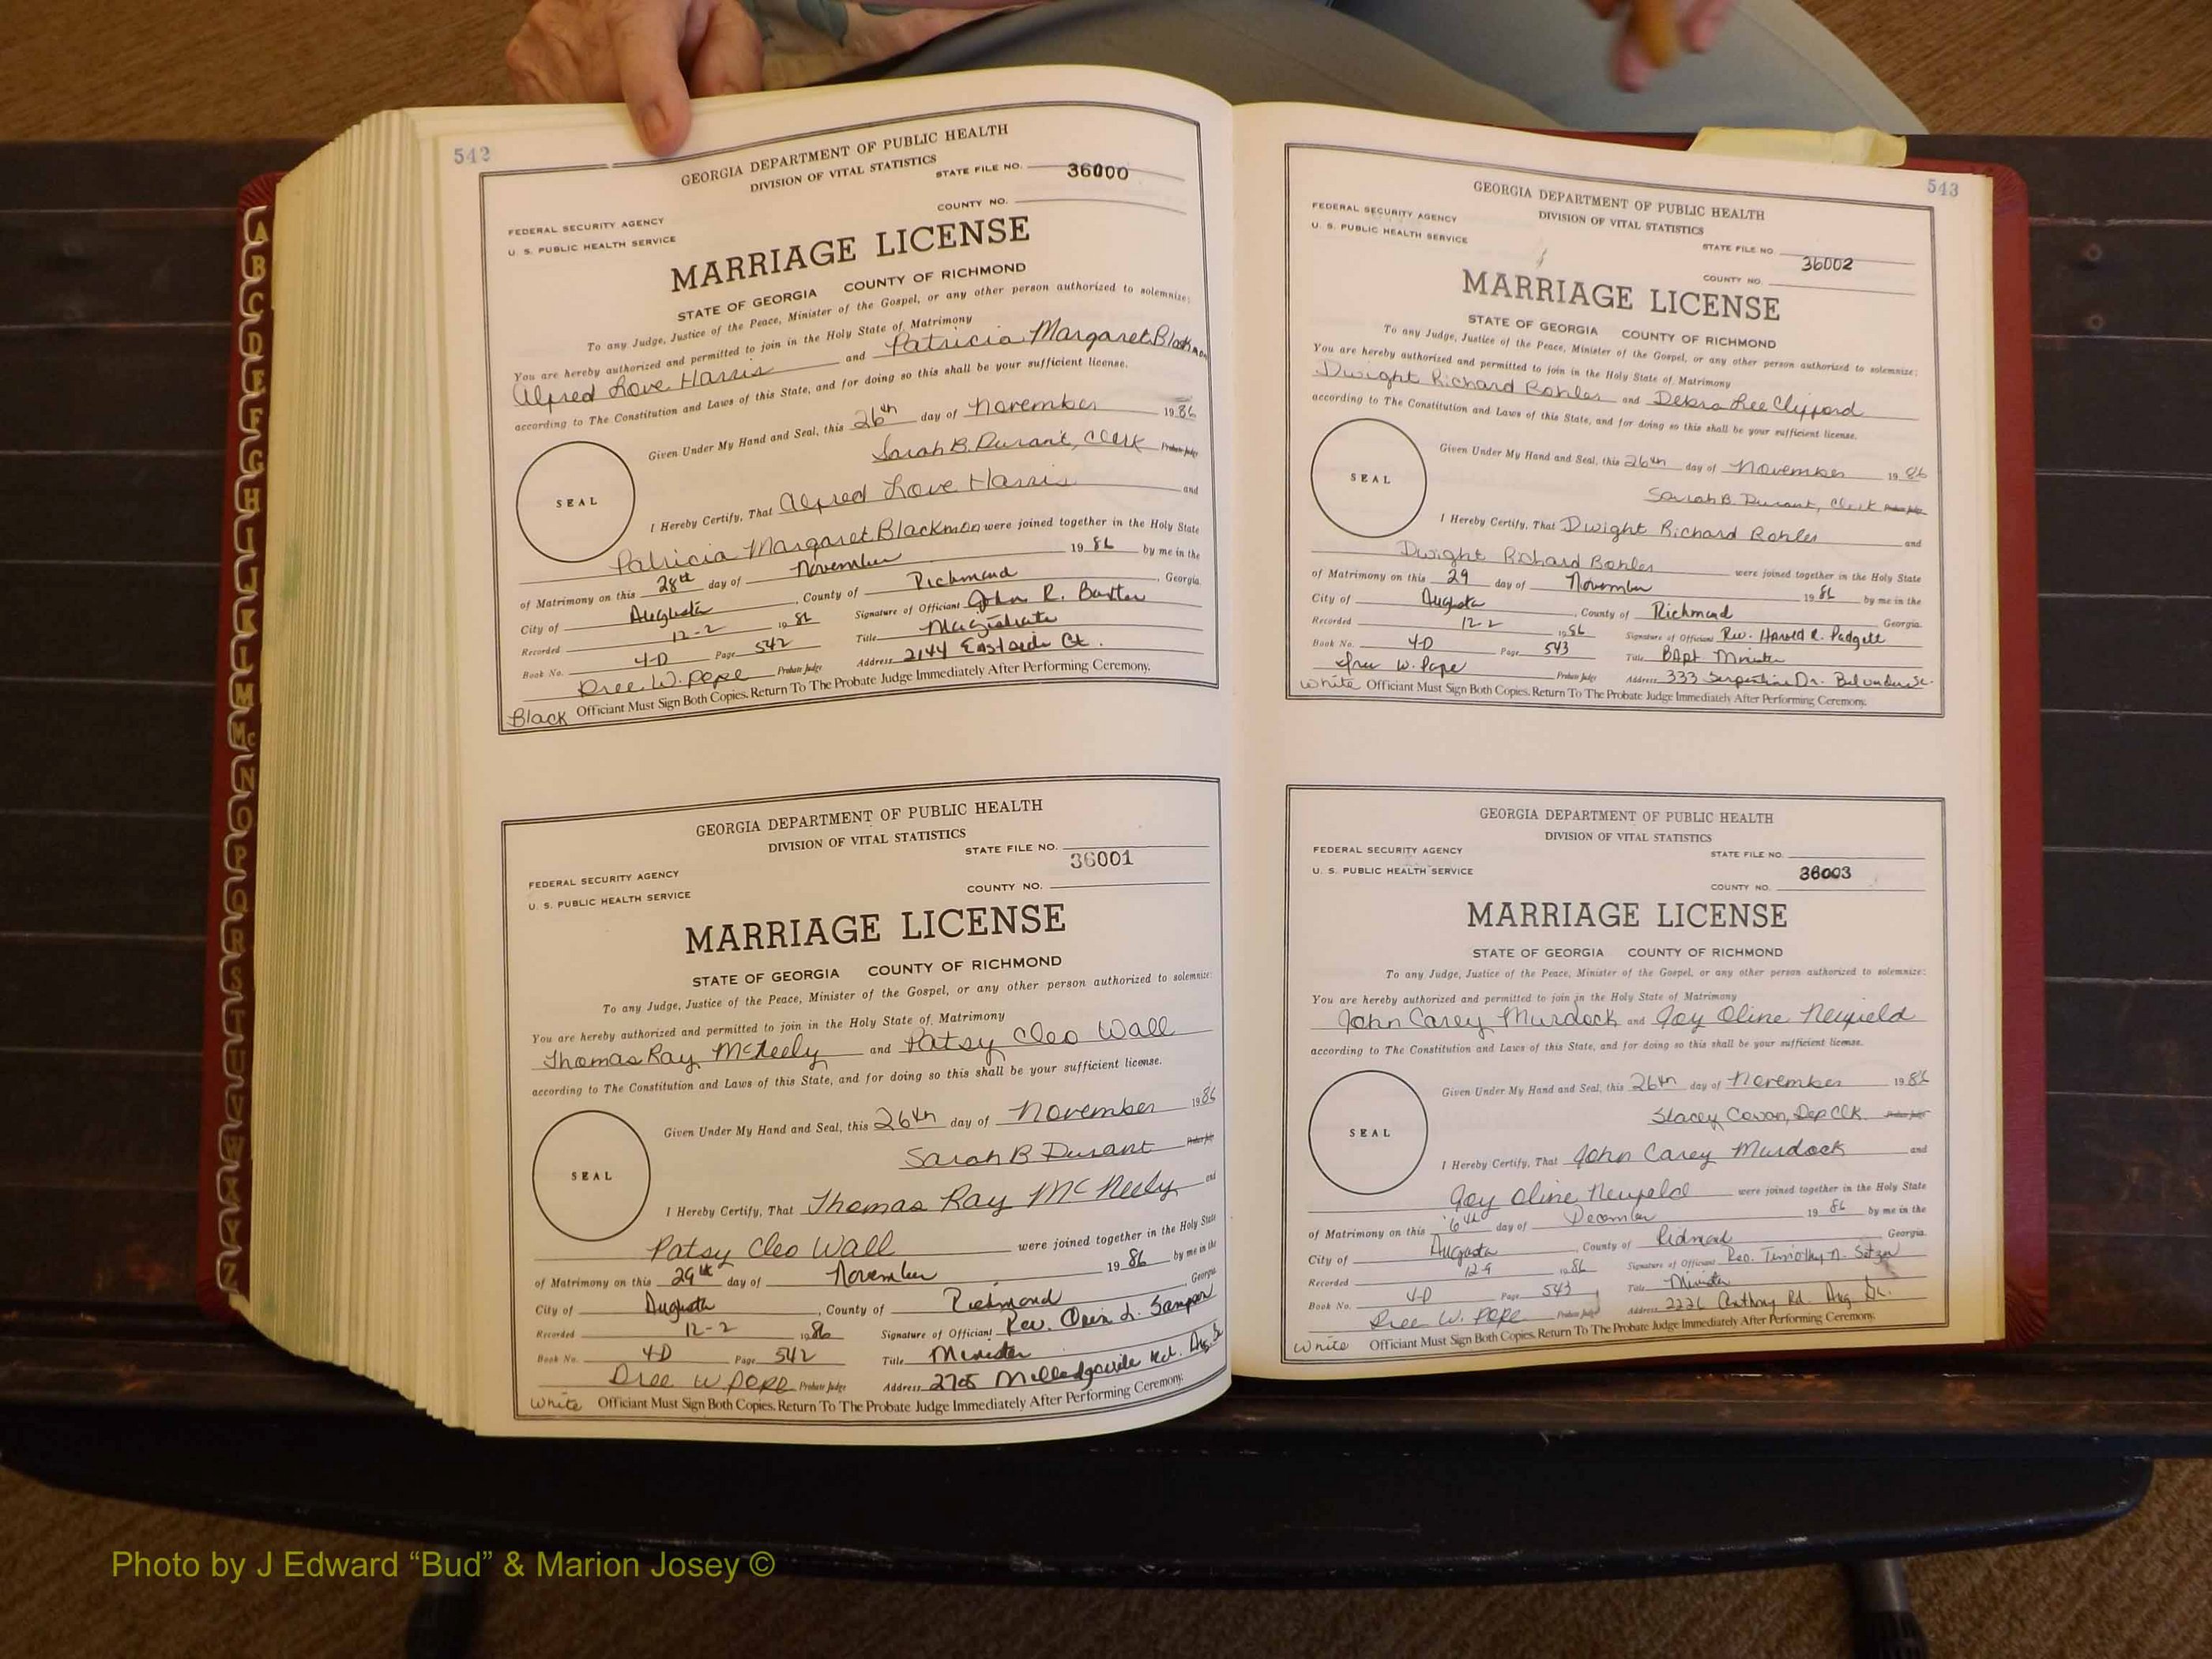 542
GEORGIA DEPARTMENT OF PUBLIC HEALTH
DIVISION OF VITAL STATISTICS
STATE FILE NO. 36000
FEDERAL SECURITY AGENCY
COUNTY NO.
U. S. PUBLIC HEALTH SERVICE
MARRIAGE LICENSE
STATE OF GEORGIA COUNTY OF RICHMOND
To any Judge, Justice of the Peace, Minister of the Gospel, or any other person authorized to solemnize:
You are hereby authorized and permitted to join in the Holy State of Matrimony
Alfred Love Harris and Patricia Margaret Blackmon
according to The Constitution and Laws of this State, and for doing so this shall be your sufficient license.
Given Under My Hand and Seal, this 26th day of November 1986
Sarah B. Durant, Clerk Probate Judge
SEAL
I Hereby Certify, That Alfred Love Harris and
Patricia Margaret Blackmon were joined together in the Holy State
of Matrimony on this 28th day of November 1986 by me in the
City of Augusta, County of Richmond, Georgia.
Recorded 12-2 1986 Signature of Officiant John R. Baxter
Book No. 4-D Page 542 Title Magistrate
Dree W. Pope Probate Judge Address 2144 Eastside Ct.
Black Officiant Must Sign Both Copies. Return To The Probate Judge Immediately After Performing Ceremony.
GEORGIA DEPARTMENT OF PUBLIC HEALTH
DIVISION OF VITAL STATISTICS
STATE FILE NO. 36001
FEDERAL SECURITY AGENCY
COUNTY NO.
U. S. PUBLIC HEALTH SERVICE
MARRIAGE LICENSE
STATE OF GEORGIA COUNTY OF RICHMOND
To any Judge, Justice of the Peace, Minister of the Gospel, or any other person authorized to solemnize:
You are hereby authorized and permitted to join in the Holy State of Matrimony
Thomas Ray McNeely and Patsy Cleo Wall
according to The Constitution and Laws of this State, and for doing so this shall be your sufficient license.
Given Under My Hand and Seal, this 26th day of November 1986
Sarah B Durant Probate Judge
SEAL
I Hereby Certify, That Thomas Ray McNeely and
Patsy Cleo Wall were joined together in the Holy State
of Matrimony on this 29th day of November 1986 by me in the
City of Augusta, County of Richmond Georgia
Recorded 12-2 1986 Signature of Officiant Rev. Orin L.
Book No. 4-D Page 542 Title Minister
Dree W Pope Probate Judge Address 2705 Milledgeville Rd. Aug.
White Officiant Must Sign Both Copies. Return To The Probate Judge Immediately After Performing Ceremony.
543
GEORGIA DEPARTMENT OF PUBLIC HEALTH
DIVISION OF VITAL STATISTICS
FEDERAL SECURITY AGENCY
U. S. PUBLIC HEALTH SERVICE
STATE FILE NO. 36002
COUNTY NO.
MARRIAGE LICENSE
STATE OF GEORGIA COUNTY OF RICHMOND
To any Judge, Justice of the Peace, Minister of the Gospel, or any other person authorized to solemnize:
You are hereby authorized and permitted to join in the Holy State of Matrimony
Dwight Richard Bohler and Debra Lee Clifford
according to The Constitution and Laws of this State, and for doing so this shall be your sufficient license.
Given Under My Hand and Seal, this 26th day of November 1986
Sarah B. Durant, Clerk Probate Judge
SEAL
I Hereby Certify, That Dwight Richard Bohler and
Dwight Richard Bohler were joined together in the Holy State
of Matrimony on this 29 day of November 1986 by me in the
City of Augusta, County of Richmond Georgia.
Recorded 12-2 1986 Signature of Officiant Rev. Harold R. Padgett
Book No. 4-D Page 543 Title Bapt Minister
Dree W. Pope Probate Judge Address 333 Serpentine Dr.
White Officiant Must Sign Both Copies. Return To The Probate Judge Immediately After Performing Ceremony.
GEORGIA DEPARTMENT OF PUBLIC HEALTH
DIVISION OF VITAL STATISTICS
FEDERAL SECURITY AGENCY
STATE FILE NO.
U. S. PUBLIC HEALTH SERVICE
36003
COUNTY NO.
MARRIAGE LICENSE
STATE OF GEORGIA COUNTY OF RICHMOND
To any Judge, Justice of the Peace, Minister of the Gospel, or any other person authorized to solemnize:
You are hereby authorized and permitted to join in the Holy State of Matrimony
John Carey Murdock and Joy Oline Neufeld
according to The Constitution and Laws of this State, and for doing so this shall be your sufficient license.
Given Under My Hand and Seal, this 26th day of November 1986
Stacey Cowan, Dep Clk. Probate Judge
SEAL
I Hereby Certify, That John Carey Murdock and
Joy Oline Neufeld were joined together in the Holy State
of Matrimony on this 6th day of December 1986 by me in the
City of Augusta, County of Richmond Georgia.
Recorded 12-9 1986 Signature of Officiant Rev. Timothy N. Setzer
Book No. 4-D Page 543 Title Minister
Dree W. Pope Probate Judge Address 2226 Anthony Rd. Aug
White Officiant Must Sign Both Copies. Return To The Probate Judge Immediately After Performing Ceremony.
A
B
C
D
E
F
G
H
I
J
K
L
M
Mc
N
O
P
Q
R
S
T
U
V
W
X
Y
Z
Photo by J Edward “Bud” & Marion Josey ©